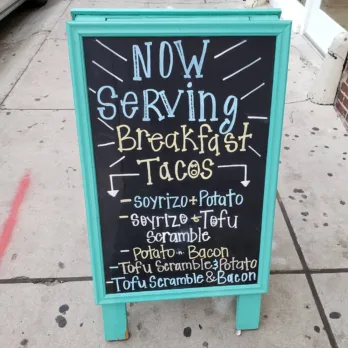 NOW
SERVING
Breakfast
Tacos
- Soyrizo + Potato
- Soyrizo + Tofu
Scramble
- Potato n Bacon
- Tofu Scramble & Potato
- Tofu Scramble & Bacon